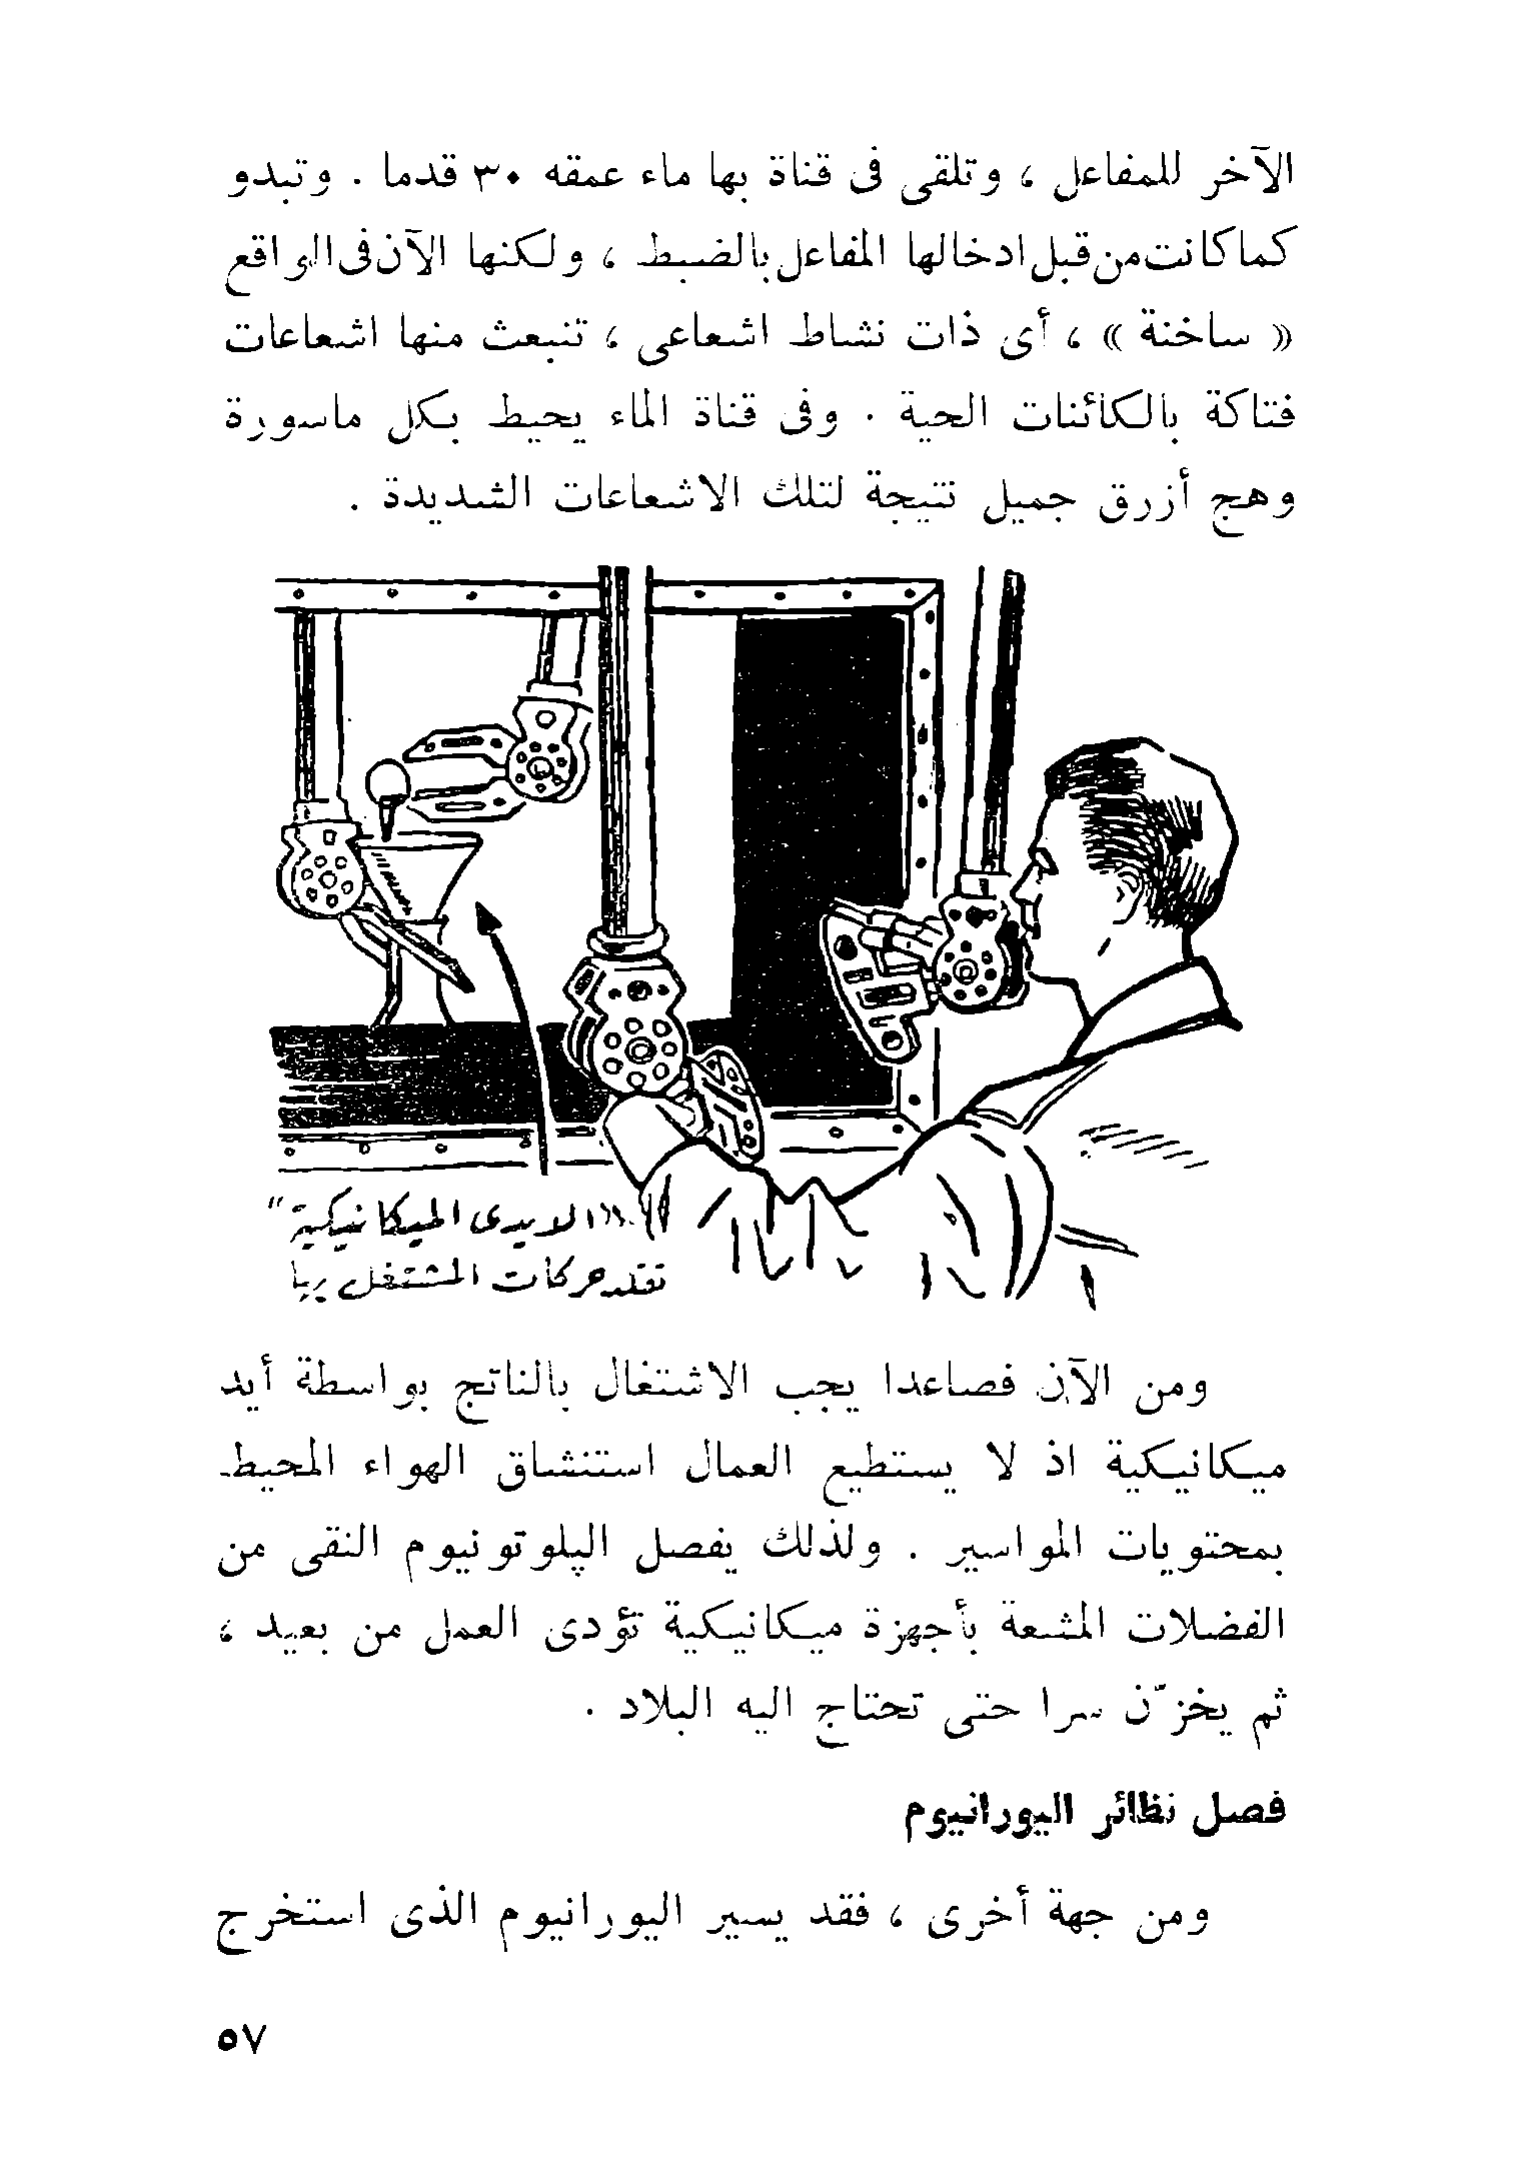 الآخر للمفاعل ، وتلقى فى قناة بها ماء عمقه ٣٠ قدما . وتبدو
كما كانت من قبل ادخالها المفاعل بالضبط ، ولكنها الآن فى الواقع
« ساخنة » ، أى ذات نشاط اشعاعى ، تنبعث منها اشعاعات
فتاكة بالكائنات الحية . وفى قناة الماء يحيط بكل ماسورة
وهج أزرق جميل نتيجة لتلك الاشعاعات الشديدة .
«الايدى الميكانيكية"
تقلد حركات المشتغل بها
ومن الآن فصاعدا يجب الاشتغال بالناتج بواسطة أيد
ميكانيكية اذ لا يستطيع العمال استنشاق الهواء المحيط
بمحتويات المواسير . ولذلك يفصل الپلوتونيوم النقى من
الفضلات المشعة بأجهزة ميكانيكية تؤدى العمل من بعيد ،
ثم يخزّن سرا حتى تحتاج اليه البلاد .
فصل نظائر اليورانيوم
ومن جهة أخرى ، فقد يسير اليورانيوم الذى استخرج
٥٧